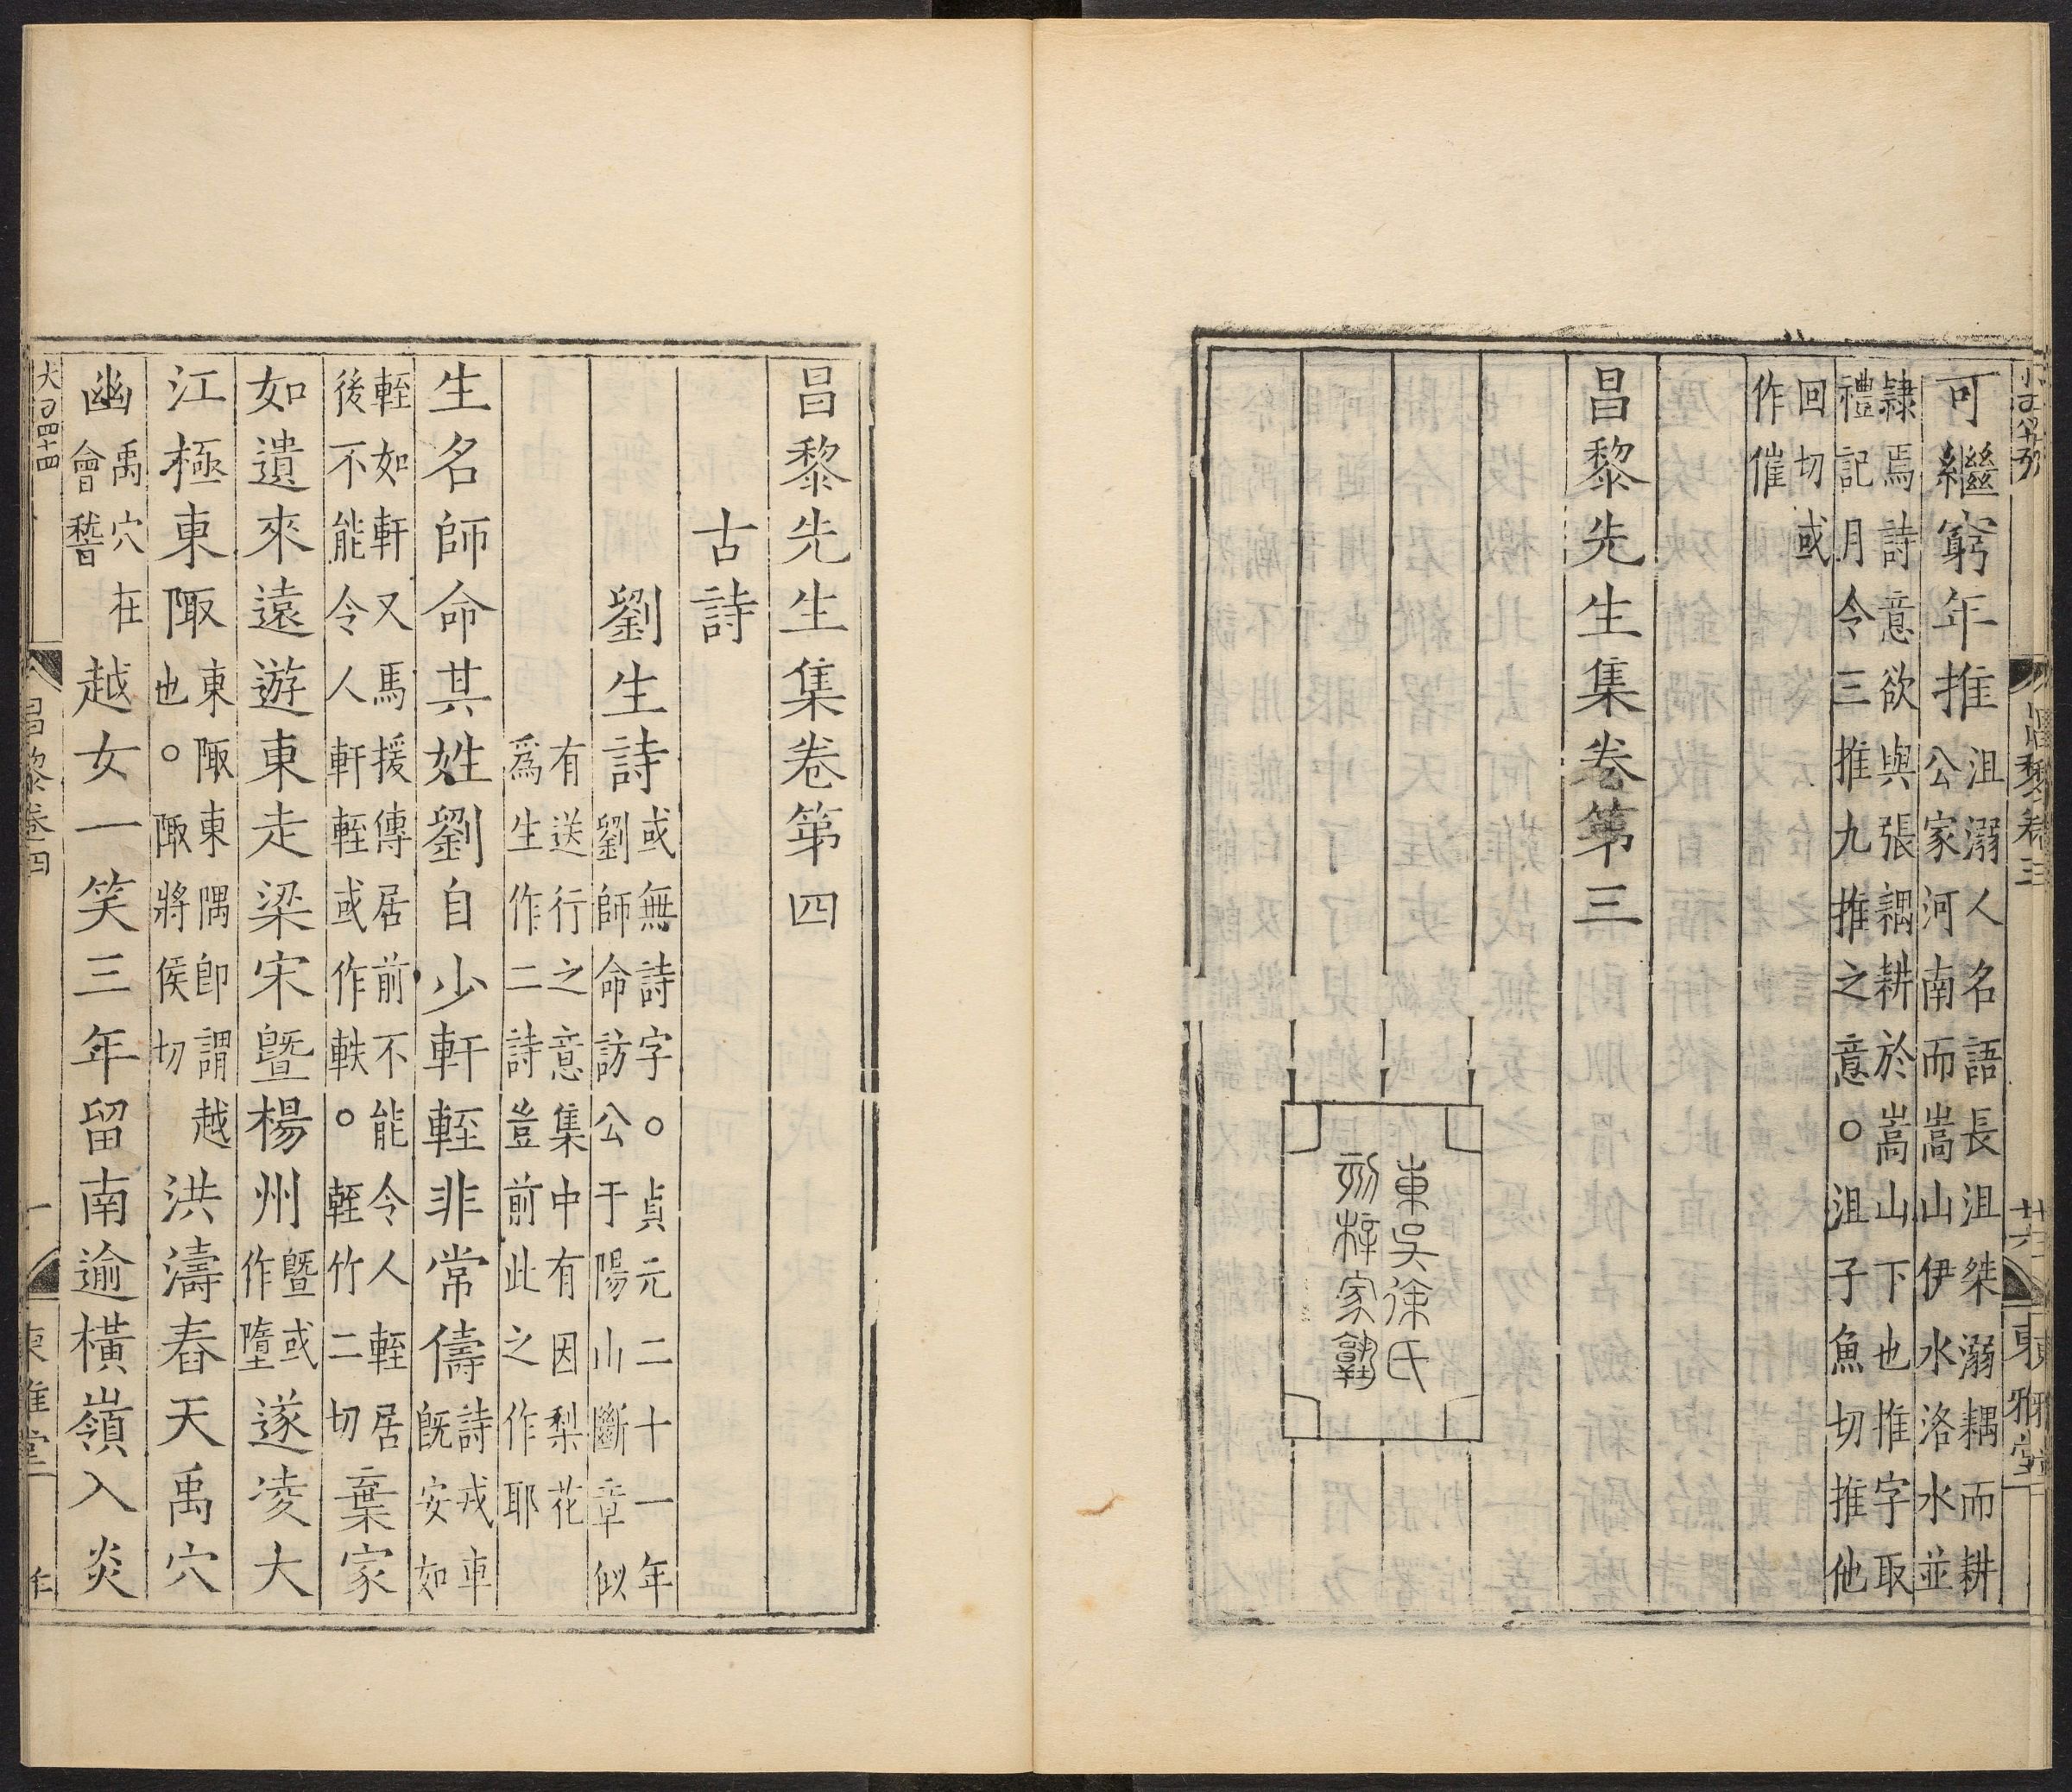 昌黎卷三 廿六 東雅堂
可繼窮年推
沮溺人名語長沮桀溺耦而耕
公家河南而嵩山伊水洛水並
隷焉詩意欲與張耦耕於嵩山下也推字取
禮記月令三推九推之意。沮子魚切推他
回切或
作催
昌黎先生集卷第三
東吳徐氏
刻梓家塾
昌黎先生集卷第四
古詩
劉生詩
或無詩字。貞元二十一年
劉師命訪公于陽山斷章似
有送行之意集中有因梨花
爲生作二詩豈前此之作耶
生名師命其姓劉自少軒輊非常儔
詩戎車
既安如
輊如軒又馬援傳居前不能令人輊居
後不能令人軒輊或作軼。輊竹二切
葉家
如遺來遠遊東走梁宋曁楊州
曁或
作墮
遂凌大
江極東陬
東陬東隅卽謂越
也。陬將侯切
洪濤舂天禹穴
幽
禹穴在
會稽
越女一笑三年留南逾橫嶺入炎
大四十四 昌黎卷四 一 東雅堂